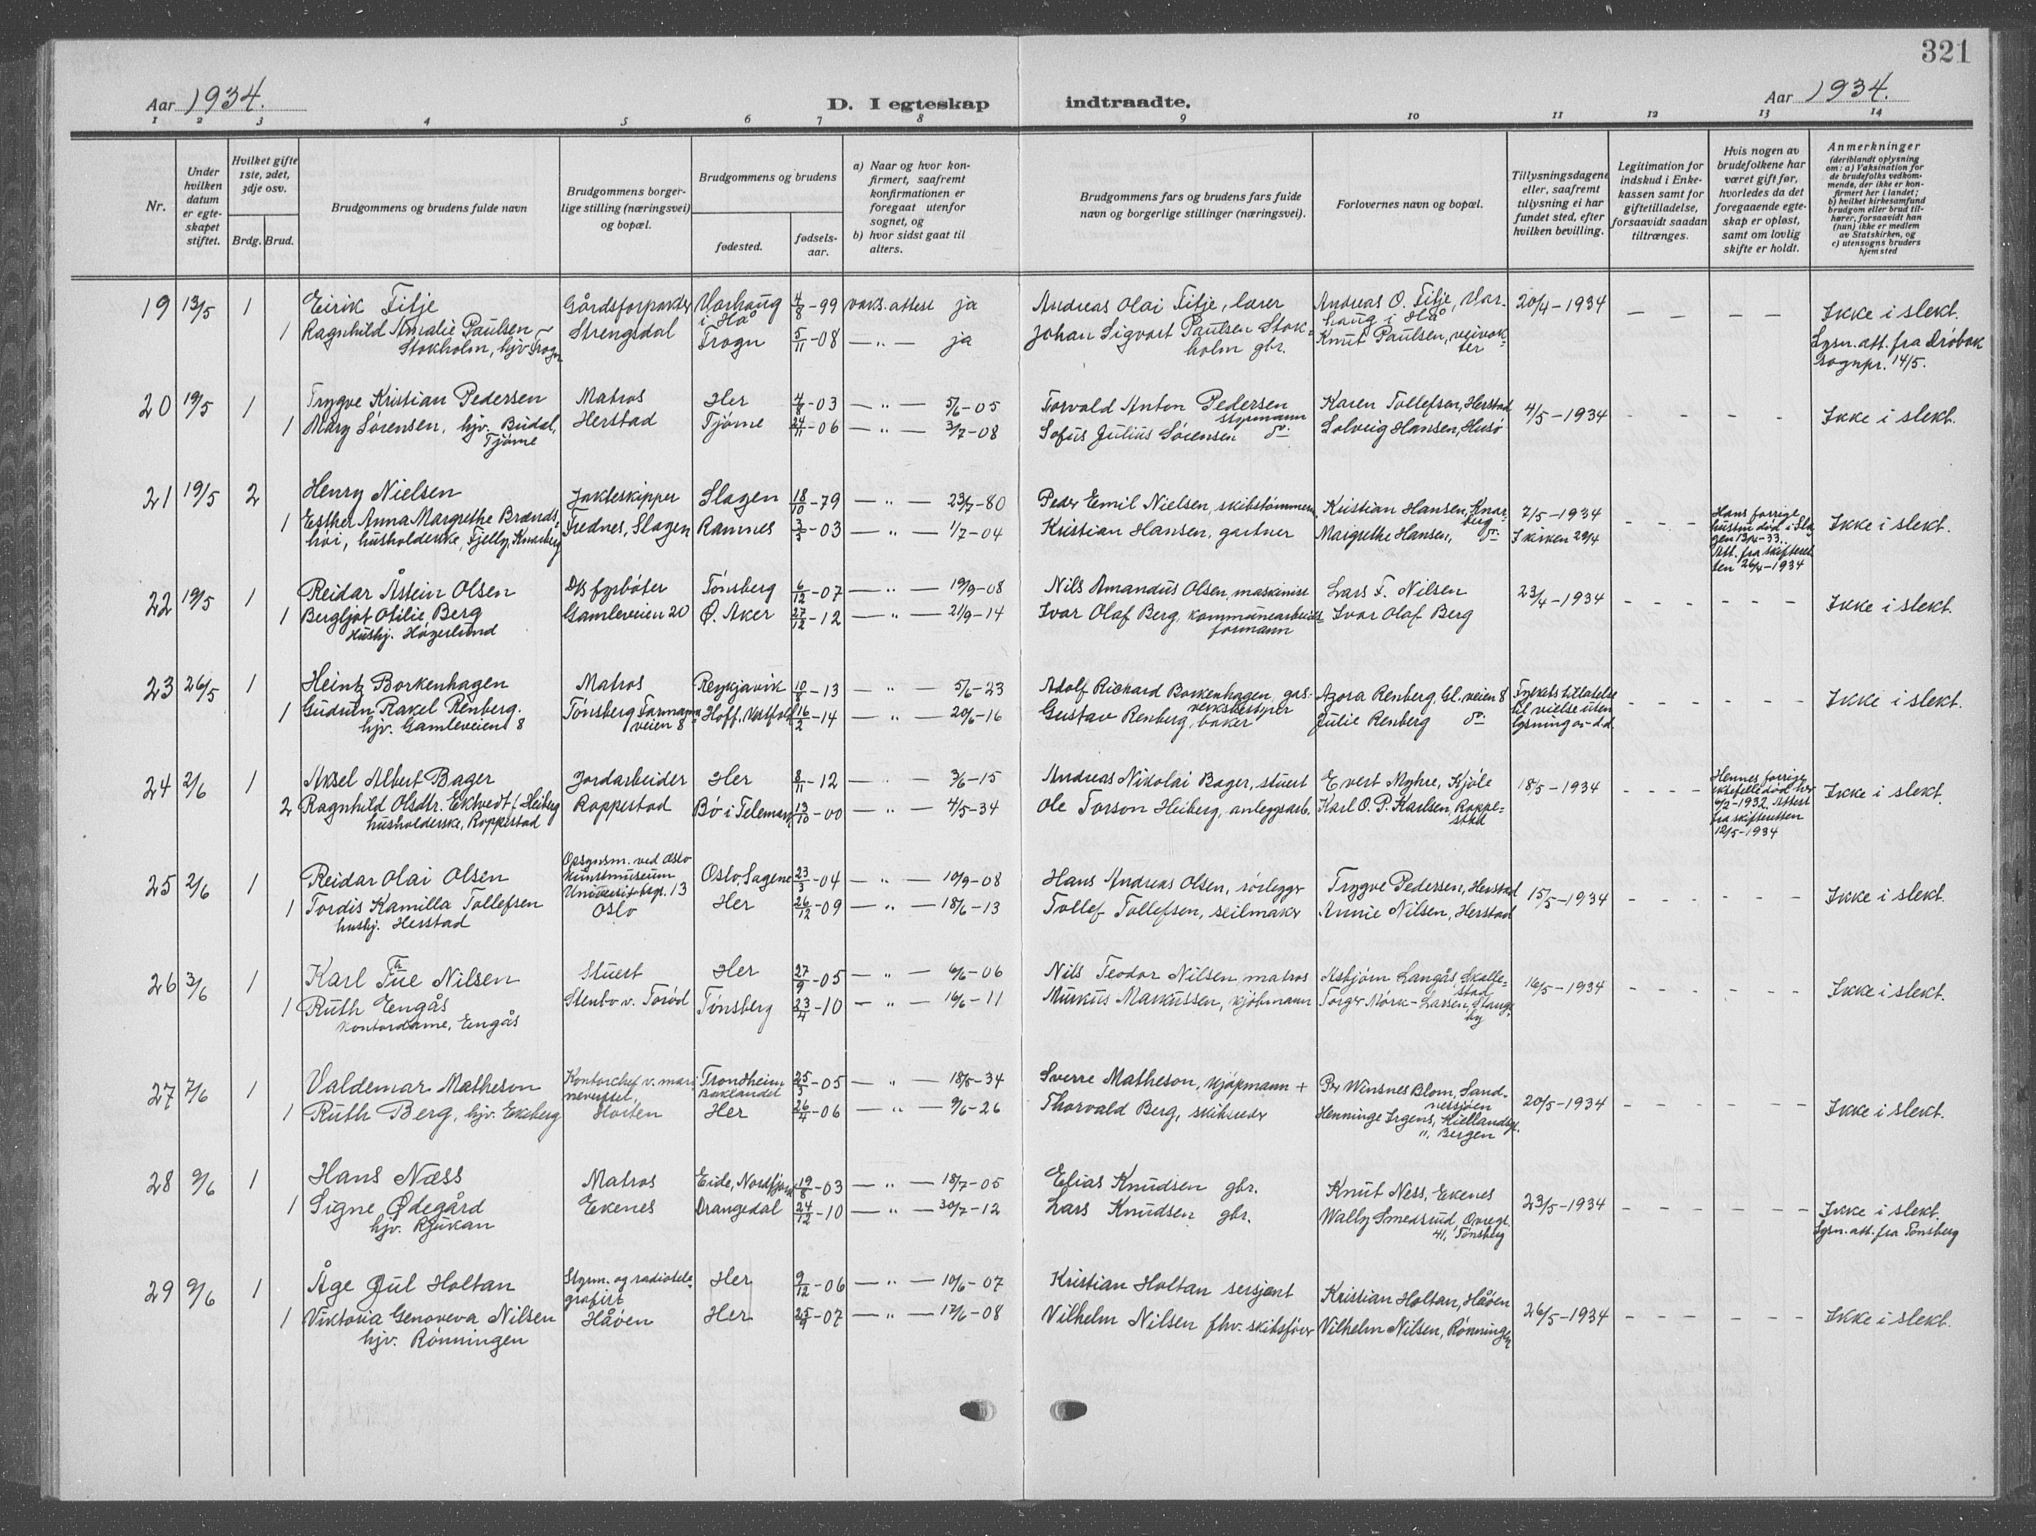 321
Aar 1934.
D. I egteskap indtraadte.
Aar 1934.
1 2 3 4 5 6 7 8 9 10 11 12 13 14
Nr.
Under hvilken datum er egteskapet stiftet.
Hvilket gifte 1ste, 2det, 3dje osv.
Brdg. Brud.
Brudgommens og brudens fulde navn
Brudgommens borgerlige stilling (næringsvei) og bopæl.
Brudgommens og brudens
fødested.
fødselsaar.
a) Naar og hvor konfirmert, saafremt konfirmationen er foregaat utenfor sognet, og
b) hvor sidst gaat til alters.
Brudgommens fars og brudens fars fulde navn og borgerlige stillinger (næringsvei).
Forlovernes navn og bopæl.
Tillysningsdagene eller, saafremt tillysning ei har fundet sted, efter hvilken bevilling.
Legitimation for indskud i Enkekassen samt for giftetilladelse, forsaavidt saadan tiltrænges.
Hvis nogen av brudefolkene har været gift før, hvorledes da det foregaaende egteskap er opløst, samt om lovlig skifte er holdt.
Anmerkninger
(deriblandt oplysning om: a) Vaksination for de brudefolks vedkommende, der ikke er konfirmert her i landet; b) hvilket kirkesamfund brudgom eller brud tilhører, forsaavidt han (hun) ikke er medlem av Statskirken, og c) utensogns bruders hjemsted
19 13/5 1 Eirik Filje Gårdsforpakter Varhaug i Hå 4/8-99 vaks. attest ja Andreas Olai Filje, lærer Andreas O. Filje, Varhaug i Hå 20/4-1934 Ikke i slekt.
1 Ragnhild Amalie Paulsen Stokholm, hjv Frogn Strengsdal Frogn 5/11-08 — " — ja Johan Sigvart Paulsen Stokholm gbr. Knut Paulsen, veivokter Lysn. att. fra Drøbak sognpr. 14/5.
20 19/5 1 Trygve Kristian Pedersen Matros Her 4/8-03 — " — 5/6-05 Torvald Anton Pedersen stopmann Karen Tollefsen, Herstad 4/5-1934 Ikke i slekt.
1 Mary Sørensen, hjv. Budal, Tjøme Herstad Tjøme 24/11-06 — " — 3/7-08 Sofus Julius Sørensen do. Solveig Hansen, Husø
21 19/5 2 Henry Nielsen Jakteskipper Slagen 18/10-79 — " — 23/7-80 Peder Emil Nielsen, skibstømmerm Kristian Hansen, Knarberg 7/5-1934 Hans forrige hustru død i Slagen 13/4-33. Att. fra skifteretten 26/4-1934 Ikke i slekt.
1 Esther Anna Margrethe Brændshøi, husholderske, Fjelly, Knarberg Frednes, Slagen Ramnes 3/3-03 — " — 1/7-04 Kristian Hansen, gartner Margrethe Hansen, do. I kirken 29/4
22 19/5 1 Reidar Åstein Olsen D/s fyrbøter Tønsberg 6/12-07 — " — 19/9-08 Nils Amandus Olsen, maskinist Lars F. Nilsen 23/4-1934 Ikke i slekt.
1 Bergljot Otilie Berg Hushj. Høgerlund Gamleveien 20 Ø. Aker 27/12-12 — " — 21/9-14 Ivar Olaf Berg, kommunearbeidsformann Ivar Olaf Berg
23 26/5 1 Heintz Borkenhagen Matros Reykjavik 10/8-13 — " — 5/6-23 Adolf Richard Borkenhagen, gasverksbestyrer Azora Renberg, Gl. veien 8 Fylkets tillatelse til vielse uten lysning av d.d. Ikke i slekt.
1 Gudrun Rakel Renberg. hjv. Gamleveien 8 Tønsberg Farmannsveien 8 Hoff, Vestfold 16/2-14 — " — 20/6-16 Gustav Renberg, baker Julie Renberg do.
24 2/6 1 Aksel Albert Bager Jordarbeider Her 8/11-12 — " — 3/6-15 Andreas Nikolai Bager, stuert Evert Myhre, Kjøle 18/5-1934 Hennes forrige ektefelle død her 6/2-1932. Attest fra skifteretten 12/5-1934 Ikke i slekt.
2 Ragnhild Olsdtr. Ektvedt f. Heiberg husholderske, Roppestad Roppestad Bø i Telemark 13/10-00 — " — 4/5-34 Ole Torson Heiberg, anleggsarb. Karl O. P. Karlsen, Roppestad
25 2/6 1 Reidar Olai Olsen Opsynsm. ved Oslo Kunstmuseum Universitetsgt. 13 Oslo Oslo, Sagene 23/3-04 — " — 10/9-08 Hans Andreas Olsen, rørlegger Trygve Pedersen, Herstad 15/5-1934 Ikke i slekt.
1 Tordis Kamilla Tollefsen hushj. Herstad Her 26/12-09 — " — 18/6-13 Tollef Tollefsen, seilmaker Annie Nilsen, Herstad
26 3/6 1 Karl Tue Nilsen Stuert Her 27/9-05 — " — 6/6-06 Nils Teodor Nilsen matros Asbjørn Langås, Skallestad 16/5-1934 Ikke i slekt.
1 Ruth Engås kontordame, Engås Stenbo v. Torød Tønsberg 23/4-10 — " — 16/6-11 Murkus Markussen, kjøbmann Torger Mørk-Larsen, Slangsby
27 7/6 1 Valdemar Matheson Kontorchef v. marinevesset, Horten Trondheim Baklandet 25/3-05 — " — 18/5-34 Sverre Matheson, kjøpmann + Per Winsnes Blom, Sandnessjøen 20/5-1934 Ikke i slekt.
1 Ruth Berg, hjv. Ekeberg Her 26/4-06 — " — 9/6-26 Thorvald Berg, skibsreder Henninge Irgens, Kiellandsgt. 11, Bergen
28 9/6 1 Hans Næss Matros Eide, Nordfjord 19/8-03 — " — 18/7-05 Elias Knudsen gbr. Knut Ness, Ekenes 23/5-1934 Ikke i slekt.
1 Signe Ødegård hjv. Rjukan Ekenes Drangedal 24/12-10 — " — 30/7-12 Lars Knudsen gbr. Wally Smedsrud, Ovregt. 41, Tønsberg Lysn. att. fra Tønsberg
29 9/6 1 Åge Jul Holtan Styrm. og radiotelegrafist Her 9/12-06 — " — 10/6-07 Kristian Holtan sersjant Kristian Holtan, Håøen 26/5-1934 Ikke i slekt.
1 Viktoria Genoveva Nilsen hjv. Rønningen Håøen Her 25/9-07 — " — 17/6-08 Vilhelm Nilsen fhv. skibsfører Vilhelm Nilsen, Rønningen